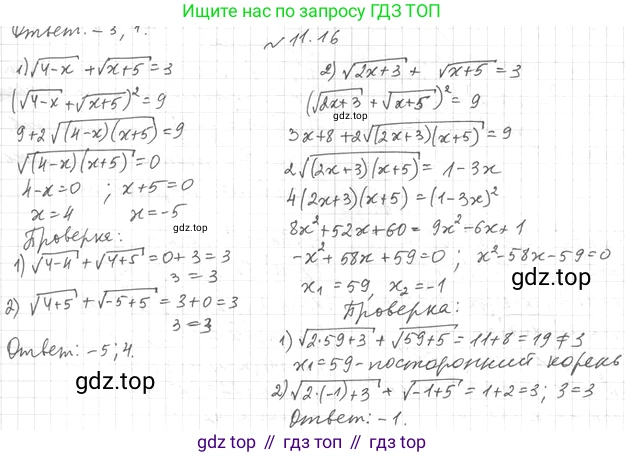 Ищите по запросу ГДЗ ТОП
Ответ: -3; 4.
№ 11.16
1) √(4-x) + √(x+5) = 3
(√(4-x) + √(x+5))² = 9
9 + 2√((4-x)(x+5)) = 9
√((4-x)(x+5)) = 0
4-x=0 ; x+5=0
x=4 x=-5
Проверка:
1) √(4-4) + √(4+5) = 0+3=3
3=3
2) √(4+5) + √(-5+5) = 3+0=3
3=3
Ответ: -5; 4.
gdz.top
2) √(2x+3) + √(x+5) = 3
gdz.top
(√(2x+3) + √(x+5))² = 9
3x+8+2√((2x+3)(x+5)) = 9
2√((2x+3)(x+5)) = 1-3x
4(2x+3)(x+5) = (1-3x)²
8x²+52x+60 = 9x²-6x+1
-x²+58x+59=0 ; x²-58x-59=0
x₁=59, x₂=-1
gdz.top
Проверка:
1) √(2·59+3) + √(59+5) = 11+8=19≠3
x₁=59 - посторонний корень
2) √(2·(-1)+3) + √(-1+5) = 1+2=3; 3=3
Ответ: -1.
gdz.top // гдз.топ // gdz.top // гдз.топ